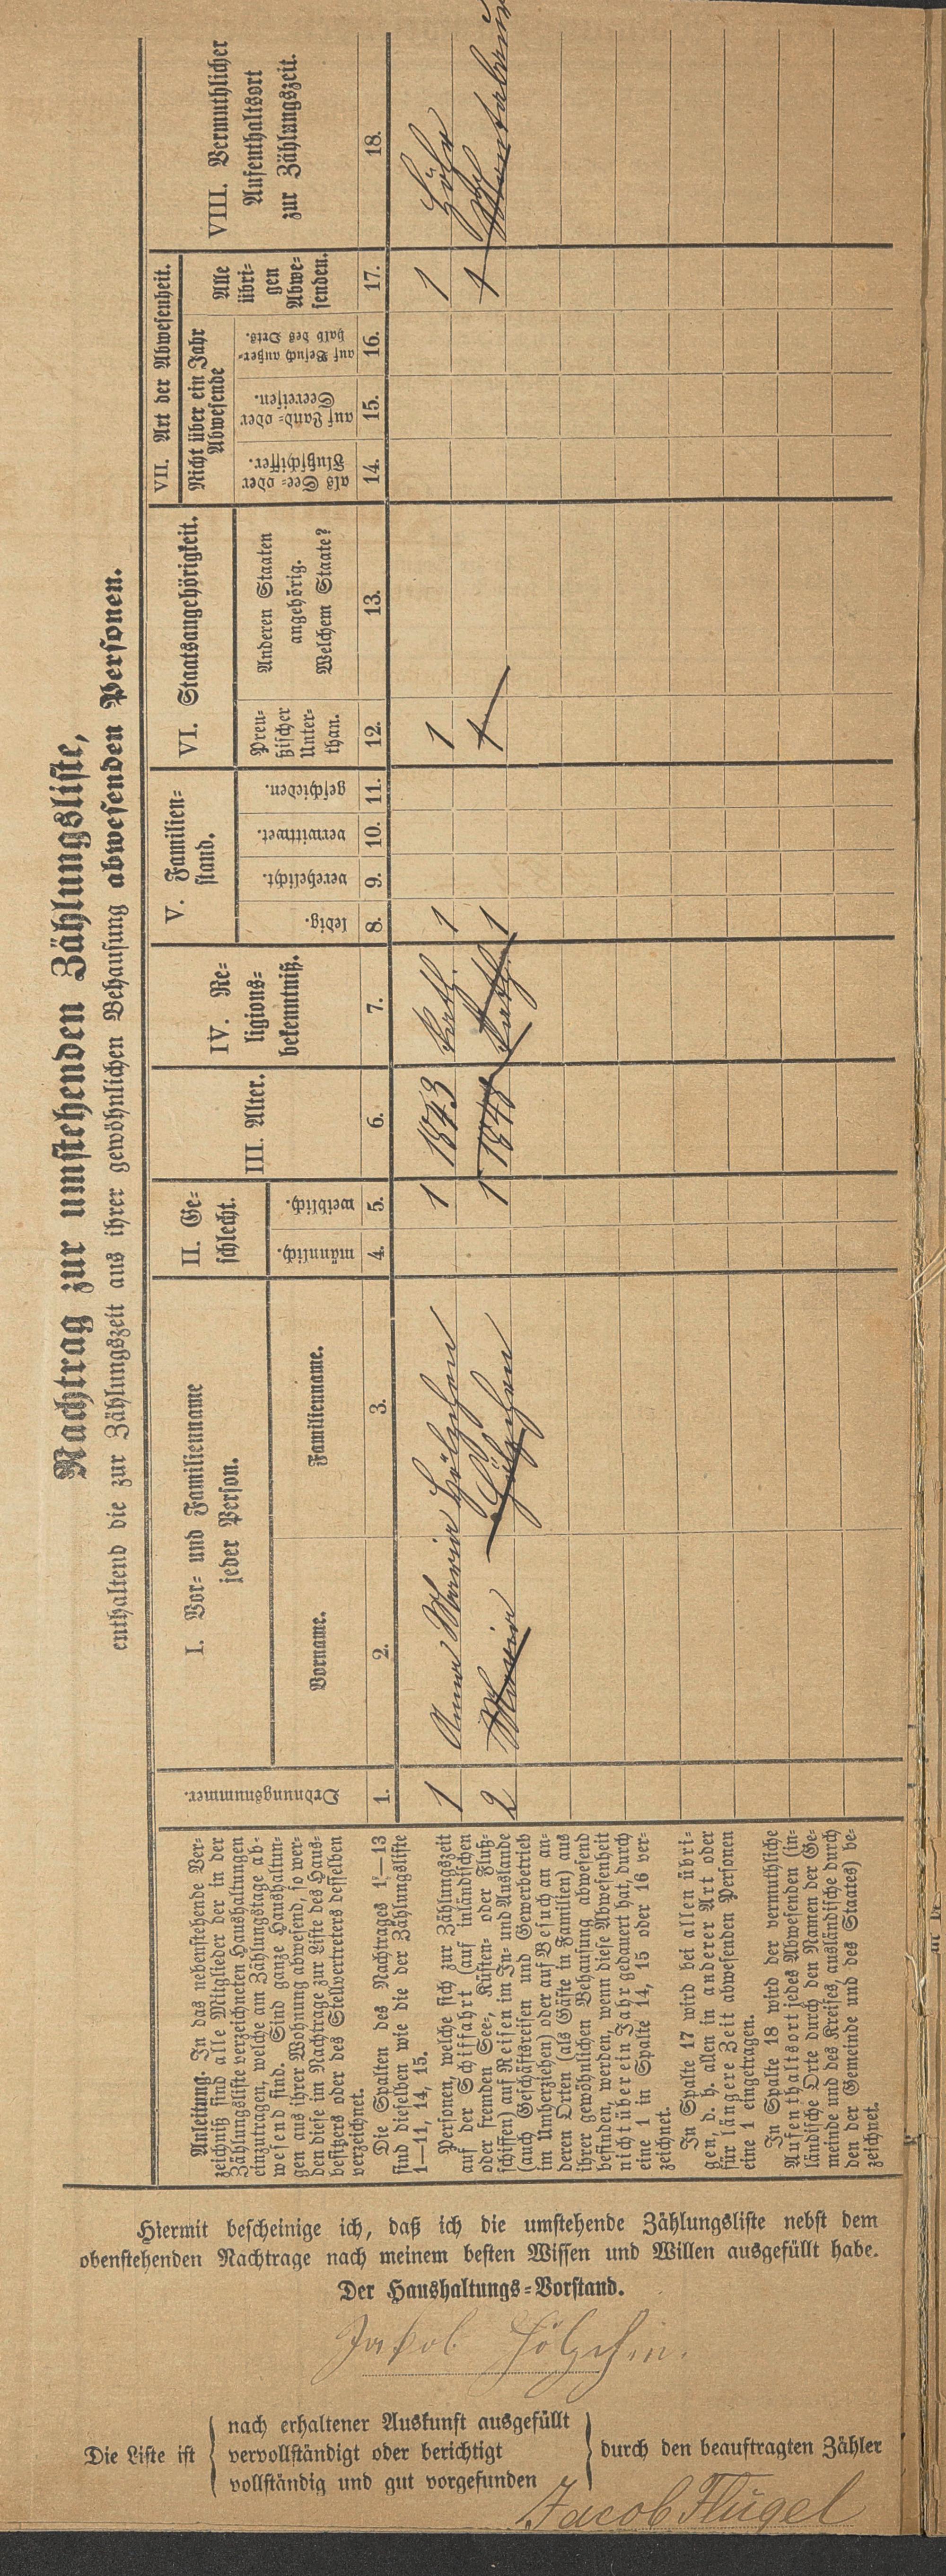 Nachtrag zur umstehenden Zählungsliste,
enthaltend die zur Zählungszeit aus ihrer gewöhnlichen Behausung abwesenden Personen.
Anleitung. In das nebenstehende Ver-
zeichniß sind alle Mitglieder der in der
Zählungsliste verzeichneten Haushaltungen
einzutragen, welche am Zählungstage ab-
wesend sind. Sind ganze Haushaltun-
gen aus ihrer Wohnung abwesend, so wer-
den diese im Nachtrage zur Liste des Haus-
besitzers oder des Stellvertreters desselben
verzeichnet.
Die Spalten des Nachtrages 1—13
sind dieselben wie die der Zählungsliste
1—11, 14, 15.
Personen, welche sich zur Zählungszeit
auf der Schifffahrt (auf inländischen
oder fremden See-, Küsten- oder Fluß-
schiffen) auf Reisen im In- und Auslande
(auch Geschäftsreisen und Gewerbetrieb
im Umherziehen) oder auf Besuch an an-
deren Orten (als Gäste in Familien) aus
ihrer gewöhnlichen Behausung abwesend
befinden, werden, wenn diese Abwesenheit
nicht über ein Jahr gedauert hat, durch
eine 1 in Spalte 14, 15 oder 16 ver-
zeichnet.
In Spalte 17 wird bei allen übri-
gen, d. h. allen in anderer Art oder
für längere Zeit abwesenden Personen
eine 1 eingetragen.
In Spalte 18 wird der vermuthliche
Aufenthaltsort jedes Abwesenden (in-
ländische Orte durch den Namen der Ge-
meinde und des Kreises, ausländische durch
den der Gemeinde und des Staates) be-
zeichnet.
Ordnungsnummer.
1.
I. Vor- und Familienname
jeder Person.
Vorname.
2.
Familienname.
3.
II. Ge-
schlecht.
männlich.
4.
weiblich.
5.
III. Alter.
6.
IV. Re-
ligions-
bekenntniß.
7.
V. Familien-
stand.
ledig.
8.
verehelicht.
9.
verwittwet.
10.
geschieden.
11.
VI. Staatsangehörigkeit.
Preu-
ßischer
Unter-
than.
12.
Anderen Staaten
angehörig.
Welchem Staate?
13.
VII. Art der Abwesenheit.
Nicht über ein Jahr
Abwesende
als See- oder
Flußschiffer.
14.
auf Land- oder
Seereisen.
15.
auf Besuch außer-
halb des Orts.
16.
Alle
übri-
gen
Abwe-
senden.
17.
VIII. Vermuthlicher
Aufenthaltsort
zur Zählungszeit.
18.
1 Anna Maria Hölzchen 1 1843 kath. 1 1 1 Höhr
2 Maria Hölzchen 1 1848 kath. 1 1 1
Hiermit bescheinige ich, daß ich die umstehende Zählungsliste nebst dem
obenstehenden Nachtrage nach meinem besten Wissen und Willen ausgefüllt habe.
Der Haushaltungs-Vorstand.
Jakob Hölzchin.
Die Liste ist
nach erhaltener Auskunft ausgefüllt
vervollständigt oder berichtigt
vollständig und gut vorgefunden
durch den beauftragten Zähler
Jacob Flügel